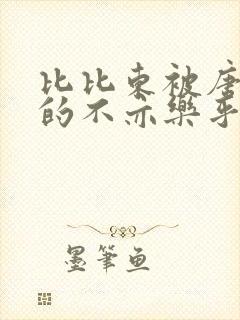 比比東被唐
的不亦樂乎
墨筆魚